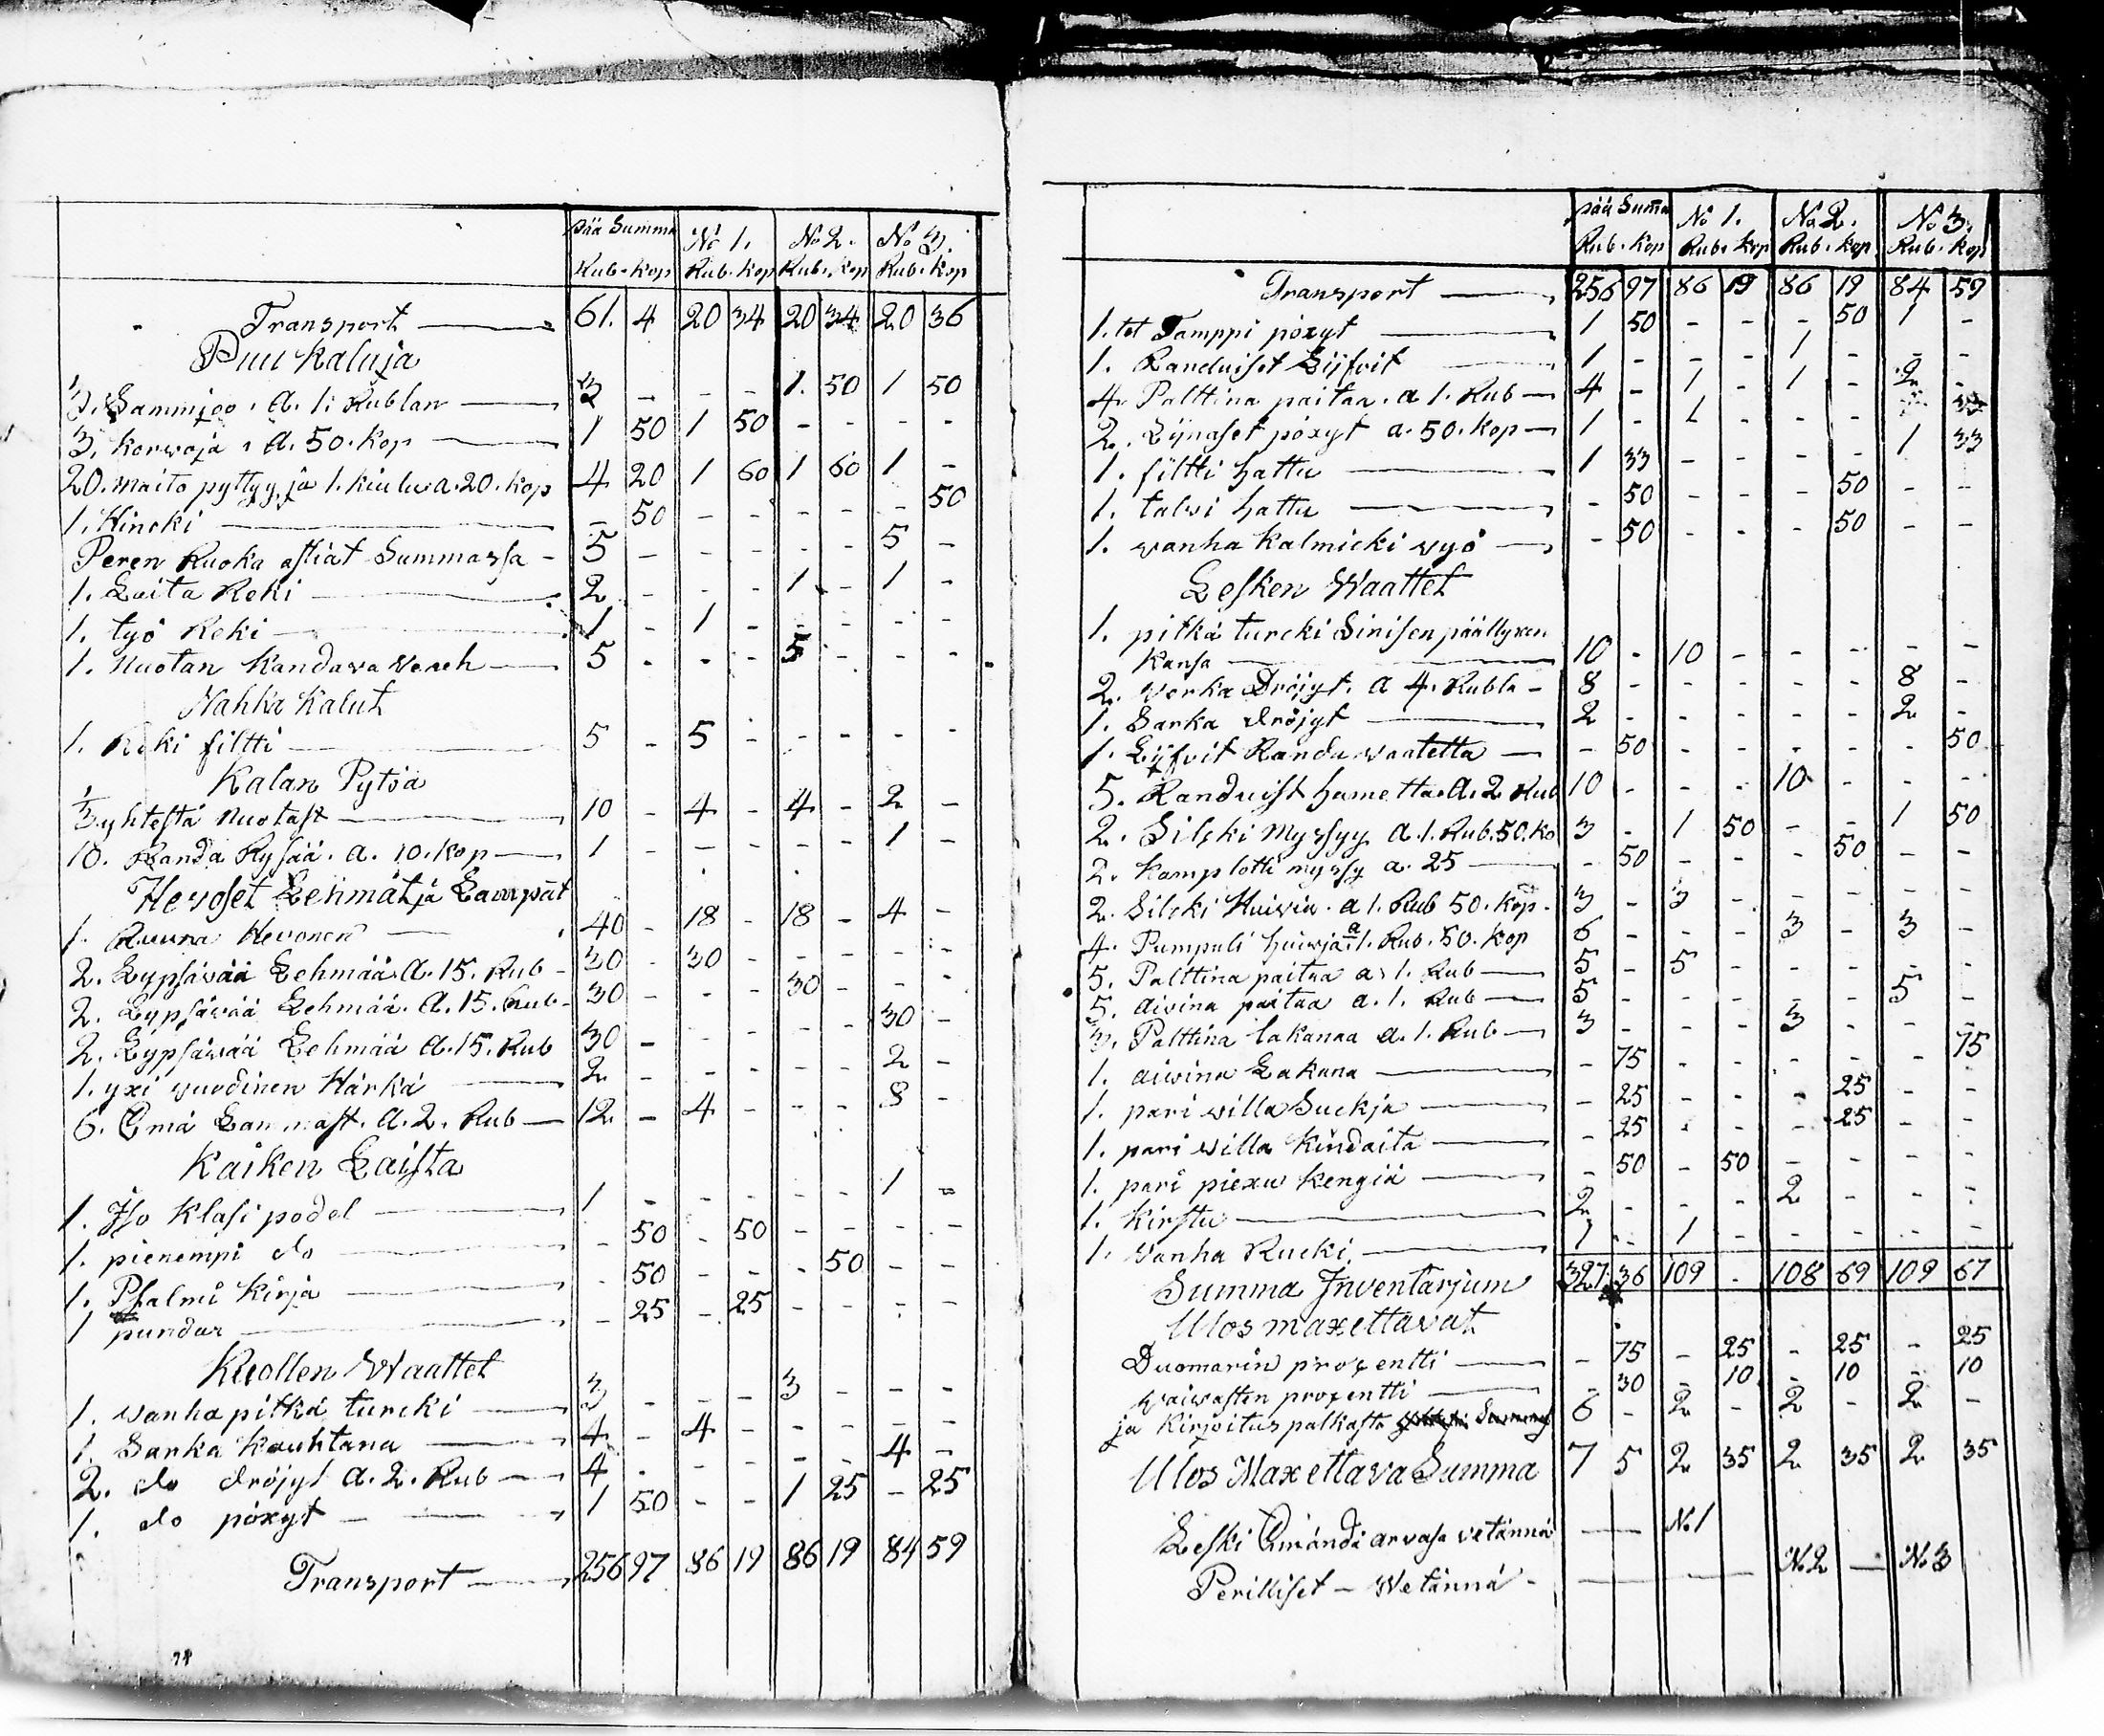 pää Summa No 1. No 2. No 3.
Rub. kop Rub. kop Rub. kop Rub. kop
Transport 61. 4 20 34 20 34 20 36
Puu Kaluja
3. Sammioo. a. 1. Rublan 3 - - - 1. 50 1 50
3. korwoja. a. 50. kop 1 50 1 50 - - - -
20. maito pyttyy ja 1. kiulu a. 20. kop 4 20 1 60 1 60 1 -
1. Hincki - 50 - - - - - 50
Peren Ruoka astiat Summassa - 5 - - - - - 5 -
1. Laita Reki 2 - - - 1 - 1 -
1. työ Reki 1 - 1 - - - - -
1. Nuotan Kandava Veneh 5 - - - 5 - - -
Nahka Kalut
1. Reki filtti 5 - 5 - - - - -
Kalan Pytöä
1/3 yhtestä Nuotast 10 - 4 - 4 - 2 -
10. Randa Rysää. a. 10. kop 1 - - - - - 1 -
Hevoset Lehmät ja Lampat
1. Ruuna Hevonen 40 - 18 - 18 - 4 -
2. Lypsävää Lehmää. a. 15. Rub 30 - 30 - - - - -
2. Lypsävää Lehmää. a. 15. Rub 30 - - - 30 - - -
2. Lypsäwää Lehmää a. 15. Rub 30 - - - - - 30 -
1. yxi wuodinen Härkä 2 - - - - - 2 -
6. Emä Lammast. a. 2. Rub 12 - 4 - - - 8 -
Kaiken Laista
1. Iso Klasi podel 1 - - - - - 1 -
1. pienempi do - 50 - 50 - - - -
1. Psalmi Kirja - 50 - - - 50 - -
1 pundar - 25 - 25 - - - -
Kuollen Waattet
1. wanha pitkä turcki 3 - - - 3 - - -
1. Sarka kauhtana 4 - 4 - - - - -
2. do dröjyt a. 2. Rub 4 - - - - - 4 -
1. do pöxyt 1 50 - - 1 25 - 25
Transport 256 97 86 19 86 19 84 59
pää Summa No 1. No 2. No 3.
Rub. kop Rub. kop Rub. kop Rub. kop
Transport 256 97 86 19 86 19 84 59
1. tet Tamppi pöxyt 1 50 - - - 50 1 -
1. Randuiset Lijfvit 1 - - - 1 - - -
4. Palttina paitaa. a 1. Rub 4 - 1 - 1 - 2 -
2. Lijnaset pöxyt a. 50. kop 1 - 1 - - - -
1. filtti hattu 1 33 - - - - 1 33
1. talwi hattu - 50 - - - 50 - -
1. wanha Kalmicki wyö - 50 - - - 50 - -
Lesken Waattet
1. pitkä turcki Sinisen päällyxen
Kansa 10 - 10 - - - - -
2. Verka dröijyt. a 4. Rubla - 8 - - - - - 8 -
1. Sarka dröjyt 2 - - - - - 2 -
1. Lijfvit Randu waatetta - 50 - - - - - 50
5. Randuist hametta. a. 2 Rub 10 - - - 10 - - -
2. Silcki Myssyy a. 1. Rub. 50. ko 3 - 1 50 - - 1 50
2. Kamplotti myssy a. 25 - 50 - - - 50 - -
2. Silcki Huivia. a 1. Rub 50. kop. 3 - 3 - - - - -
4. Pumpuli huiwja a 1. Rub. 50. kop 6 - - - 3 - 3 -
5. Palttina paitaa a 1. Rub 5 - 5 - - - - -
5. aivina paitaa a. 1. Rub 5 - - - - - 5 -
3. Palttina lakanaa a. 1. Rub 3 - - - 3 - - -
1. aiwina Lakana - 75 - - - - - 75
1. pari willa Suckja - 25 - - - 25 - -
1. pari willa Kindaita - 25 - - - 25 - -
1. pari piexu Kengiä - 50 - 50 - - - -
1. Kirstu 2 - - - 2 - - -
1. Vanha Rucki 1 - 1 - - - - -
Summa Inventarjum 327 36 109 - 108 69 109 67
Ulos maxettavat
Duomarin procentti - 75 - 25 - 25 - 25
waiwasten procentti - 30 - 10 - 10 - 10
ja Kirjoitus palkasta 6 - 2 - 2 - 2 -
Ulos Maxettava Summa 7 5 2 35 2 35 2 35
Leski Emändä arvasa vetännä No 1
Perilliset - Wetännä - No 2 - No 3